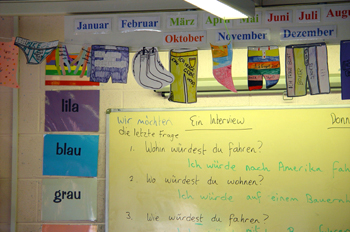 Januar Februar März April Mai Juni Juli Augus
Oktober November Dezember
lila
blau
grau
Wir möchten Ein Interview Donn
die letzte Frage
1. Wohin würdest du fahren?
Ich würde nach Amerika fah
2. Wo würdest du wohnen?
Ich würde auf einem Bauernh
3. Wie würdest du fahren?